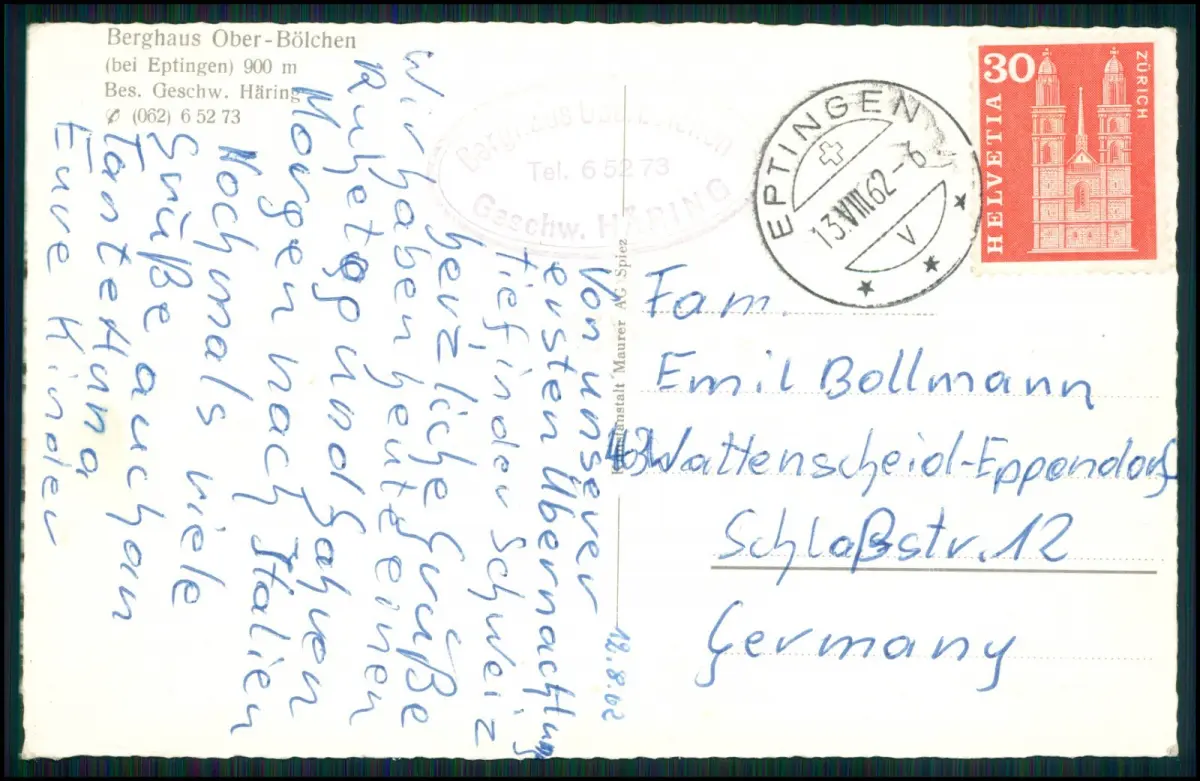 Berghaus Ober-Bölchen
(bei Eptingen) 900 m
Bes. Geschw. Häring
✆ (062) 6 52 73
Tel. 6 52 73
Geschw. HÄRING
EPTINGEN
13.VIII.62 - 6
V
30
HELVETIA
ZÜRICH
12.8.62
Von unserer
ersten Übernachtung
tief in der Schweiz
herzliche Grüße
Wir haben heute einen
Ruhetag und fahren
Morgen nach Italien
Nochmals viele
Grüße auch an
Tante Anna
Eure Kinder
Kunstanstalt Maurer AG Spiez
Fam.
Emil Bollmann
Wattenscheid-Eppendorf
Schlaßstr. 12
Germany